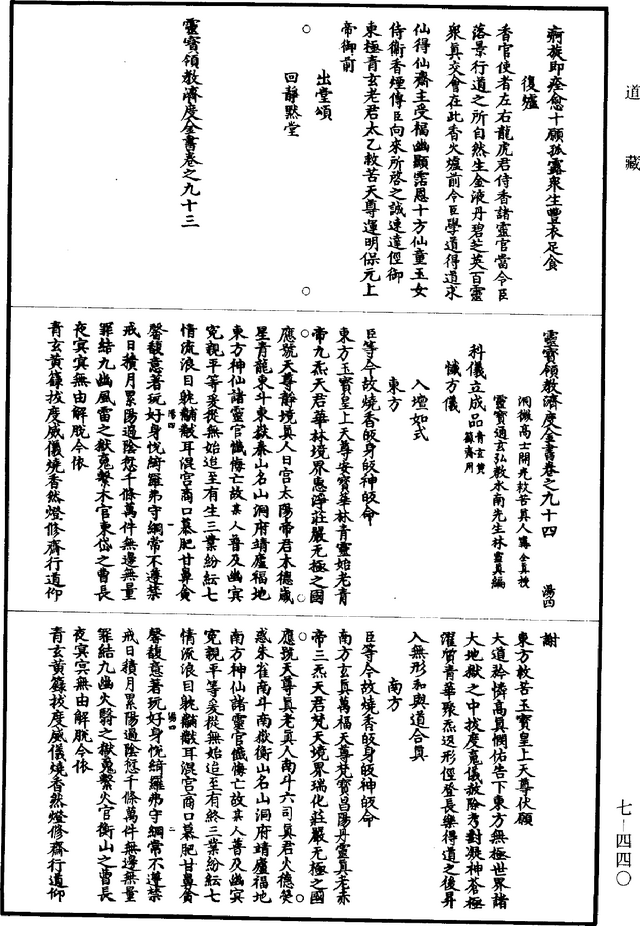 道藏
痾族即痊愈十願孤露眾生豐衣足食
復爐
香官使者左右龍虎君侍香諸靈官當令臣
落景行道之所自然生金液丹碧芝英百靈
眾真交會在此香火爐前令臣學道得道求
仙得仙齋主受福幽顯霑恩十方仙童玉女
侍衛香煙傳臣向來所啓之誠速達徑御
東極青玄老君太乙救苦天尊運明保元上
帝御前
出堂頌
回靜默堂
靈寶領教濟度金書卷之九十三
靈寶領教濟度金書卷之九十四 湯四
洞微高士開光救苦真人 全真授
靈寶通玄弘教水南先生林靈真編
科儀立成品 青玄黃籙齋用
懺方儀
入壇如式
東方
臣等今故燒香皈身皈神皈命
東方玉寶皇上天尊安寶華林青靈始老青
帝九炁天君華林境界惠淨莊嚴无極之國
應號天尊靜境真人日宮太陽帝君木德歲
星青龍東斗東嶽泰山名山洞府靖廬福地
東方神仙諸靈官懺悔亡故某人普及幽冥
冤親平等爰從無始迨至有生三業紛紜七
情流浪目眈黼黻耳混宮商口慕肥甘鼻貪
馨馥意著玩好身悅綺羅弗守綱常不遵禁
戒日積月累陽過陰愆千條萬件無邊無量
罪結九幽風雷之獄魂繫木官東岱之曹長
夜冥冥無由解脫今依
青玄黃籙拔度威儀燒香然燈修齋行道仰
湯四 一
謝
東方救苦玉寶皇上天尊伏願
大道矜憐高真憫佑告下東方無極世界諸
大地獄之中拔度魂儀赦除考對凝神蒼極
濯質青華聚炁返形徑登長樂得道之後昇
入無形和與道合真
南方
臣等今故燒香皈身皈神皈命
南方玄真萬福天尊梵寶昌陽丹靈真老赤
帝三炁天君梵天境界瑞化莊嚴无極之國
應號天尊真老真人南斗六司真君火德熒
惑朱雀南斗南嶽衡山名山洞府靖廬福地
南方神仙諸靈官懺悔亡故某人普及幽冥
冤親平等爰從無始迨至有終三業紛紜七
情流浪目眈黼黻耳混宮商口慕肥甘鼻貪
馨馥意著玩好身悅綺羅弗守綱常不遵禁
戒日積月累陽過陰愆千條萬件無邊無量
罪結九幽火翳之獄魂繫火官衡山之曹長
夜冥冥無由解脫今依
青玄黃籙拔度威儀燒香然燈修齋行道仰
湯四 二
七—四四〇